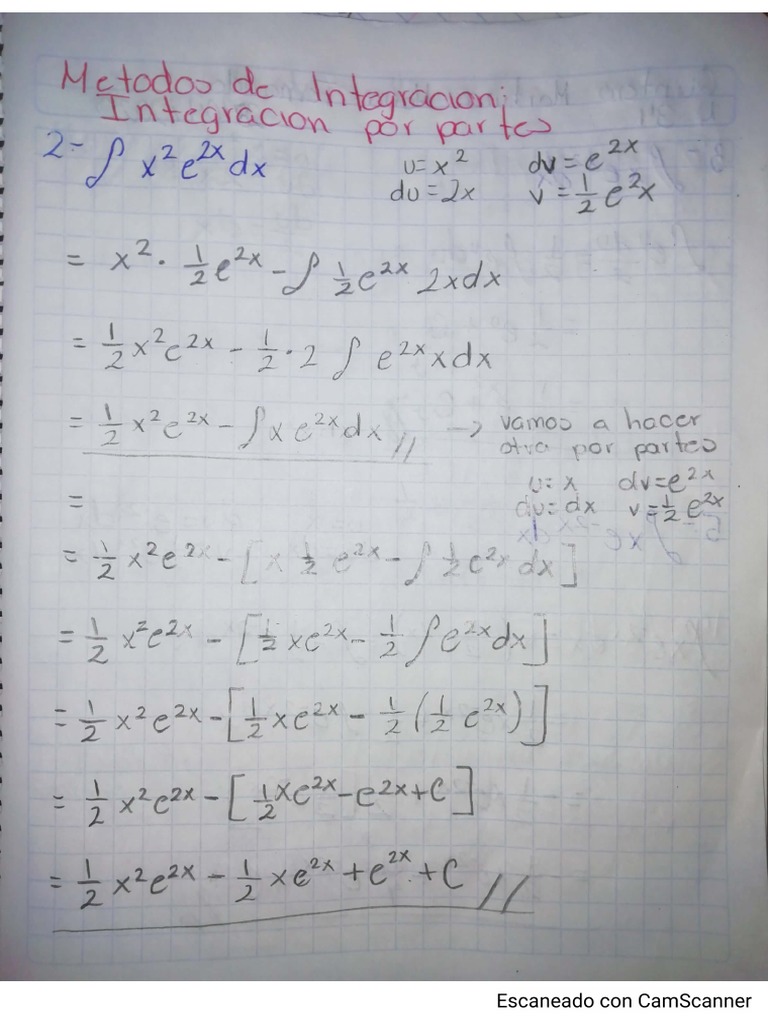 Metodos de Integracion;
Integracion por partes
2- ∫ x²e²ˣdx u=x² dv=e²ˣ
du=2x v=½e²x
= x² · ½e²ˣ - ∫ ½e²ˣ 2xdx
= ½x²e²ˣ - ½·2 ∫ e²ˣxdx
= ½x²e²ˣ - ∫xe²ˣdx // → vamos a hacer
otra por partes
u=x dv=e²ˣ
= du=dx v=½e²ˣ
= ½x²e²ˣ - [x ½ e²ˣ - ∫ ½e²ˣ dx]
= ½x²e²ˣ - [½xe²ˣ - ½ ∫e²ˣdx]
= ½x²e²ˣ - [½xe²ˣ - ½(½e²ˣ)]
= ½x²e²ˣ - [½xe²ˣ - e²ˣ + C]
= ½x²e²ˣ - ½xe²ˣ + e²ˣ + C //
Escaneado con CamScanner